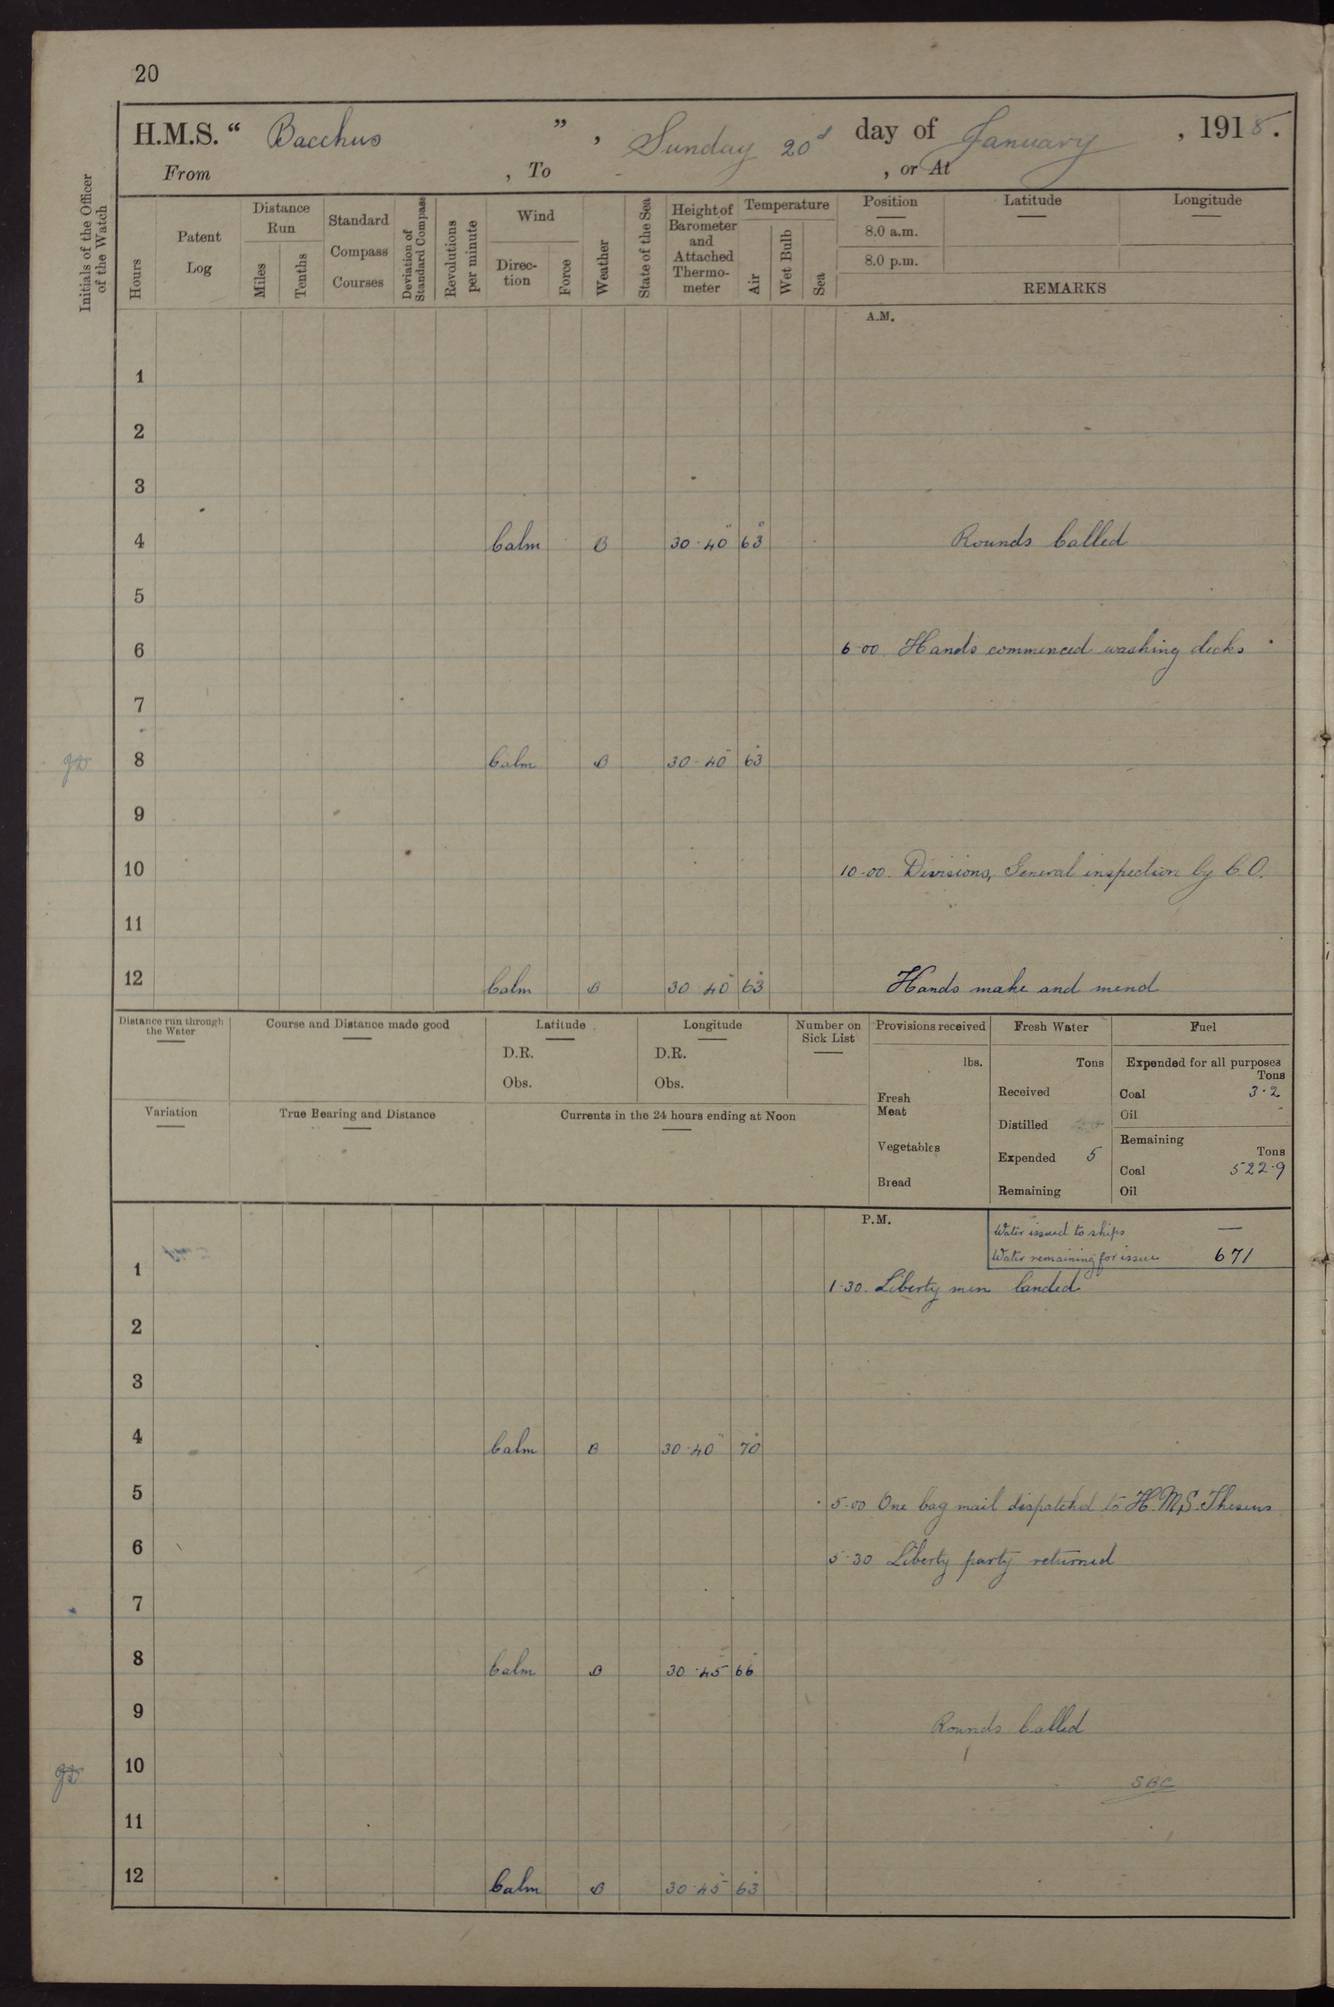 20
H.M.S. “ Bacchus ” , Sunday 20d day of January , 1918.
From , To - , or At
Initials of the Officer of the Watch
Hours
Patent Log
Distance Run
Miles
Tenths
Standard Compass Courses
Deviation of Standard Compass
Revolutions per minute
Wind
Direction
Force
Weather
State of the Sea
Height of Barometer and Attached Thermometer
Temperature
Air
Wet Bulb
Sea
Position
8.0 a.m.
8.0 p.m.
Latitude
Longitude
REMARKS
A.M.
1
2
3
4 Calm B 30·40 63 Rounds Called
5
6 6·00 Hands commenced washing decks
7
8 Calm B 30·40 63
9
10 10·00 Divisions, General inspection by C.O.
11
12 Calm B 30 40 63 Hands make and mend
Distance run through the Water
Course and Distance made good
Latitude
D.R.
Obs.
Longitude
D.R.
Obs.
Number on Sick List
Provisions received
lbs.
Fresh Meat
Vegetables
Bread
Fresh Water
Tons
Received
Distilled
Expended 5
Remaining
Fuel
Expended for all purposes
Tons
Coal 3·2
Oil -
Remaining
Tons
Coal 522·9
Oil
Variation
True Bearing and Distance
Currents in the 24 hours ending at Noon
P.M.
Water issued to ships —
Water remaining for issue 671
1
1·30. Liberty men landed
2
3
4 Calm B 30·40 70
5 5·00 One bag mail dispatched to H.M.S. Theseus
6 5·30 Liberty party returned
7
8 Calm B 30·45 66
9 Rounds Called
10 SBC
11
12 Calm B 30·45 63